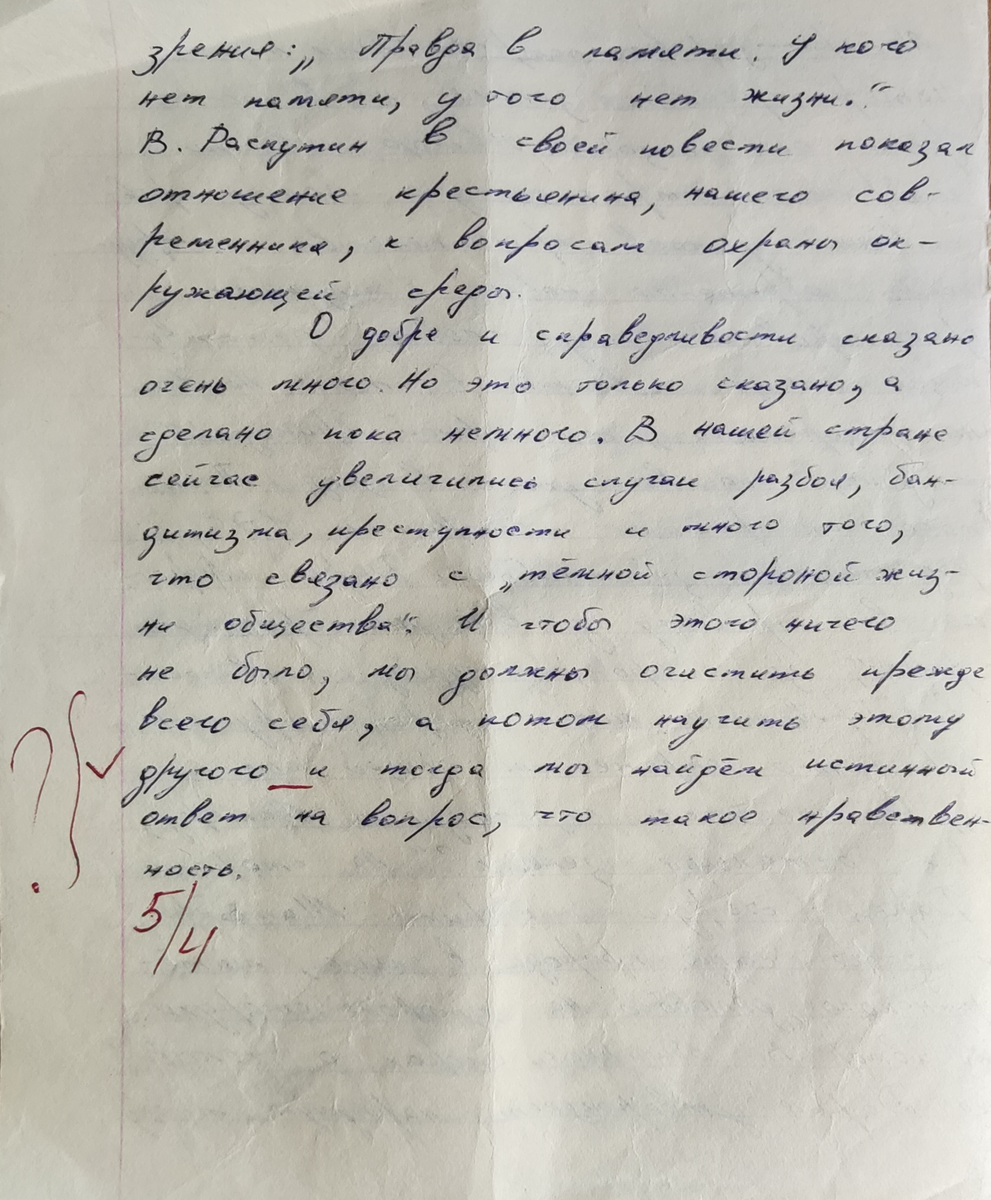 зрения: „Правда в памяти. У кого
нет памяти, у того нет жизни."
В. Распутин в своей повести показал
отношение крестьянина, нашего сов-
ременника, к вопросам охраны ок-
ружающей среды.
О добре и справедливости сказано
очень много. Но это только сказано, а
сделано пока немного. В нашей стране
сейчас увеличились случаи разбоя, бан-
дитизма, преступности и много того,
что связано с „тёмной стороной жиз-
ни общества". И чтобы этого ничего
не было, мы должны очистить прежде
всего себя, а потом научить этому
другого и тогда мы найдём истинный
ответ на вопрос, что такое нравствен-
ность.
?
5/4